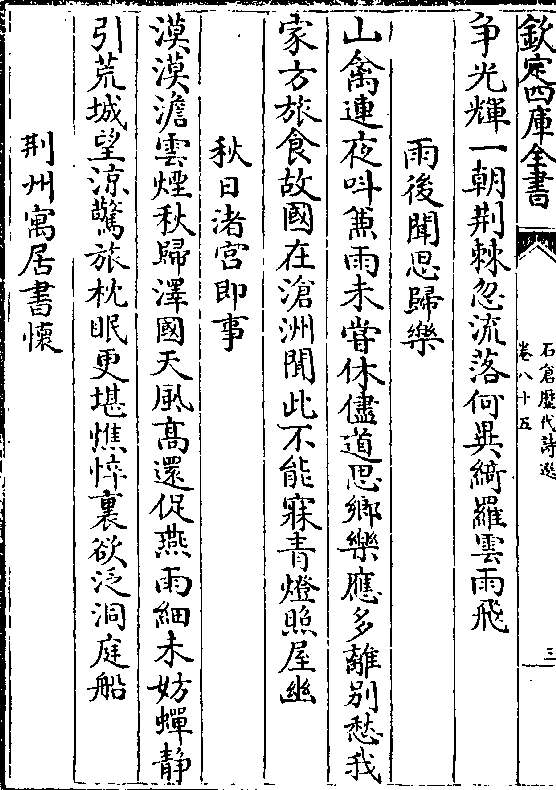 欽定四庫全書
石倉歷代詩選
卷八十五
三
争光輝一朝荆棘忽流落何異綺羅雲雨飛
雨後聞思歸樂
山禽連夜呌兼雨未嘗休儘道思鄉樂應多離别愁我
家方旅食故國在滄洲聞此不能寐青燈照屋幽
秋日渚宫即事
漠漠澹雲煙秋歸澤國天風髙還促燕雨細未妨蟬静
引荒城望凉驚旅枕眠更堪憔悴裏欲泛洞庭船
荆州寓居書懷